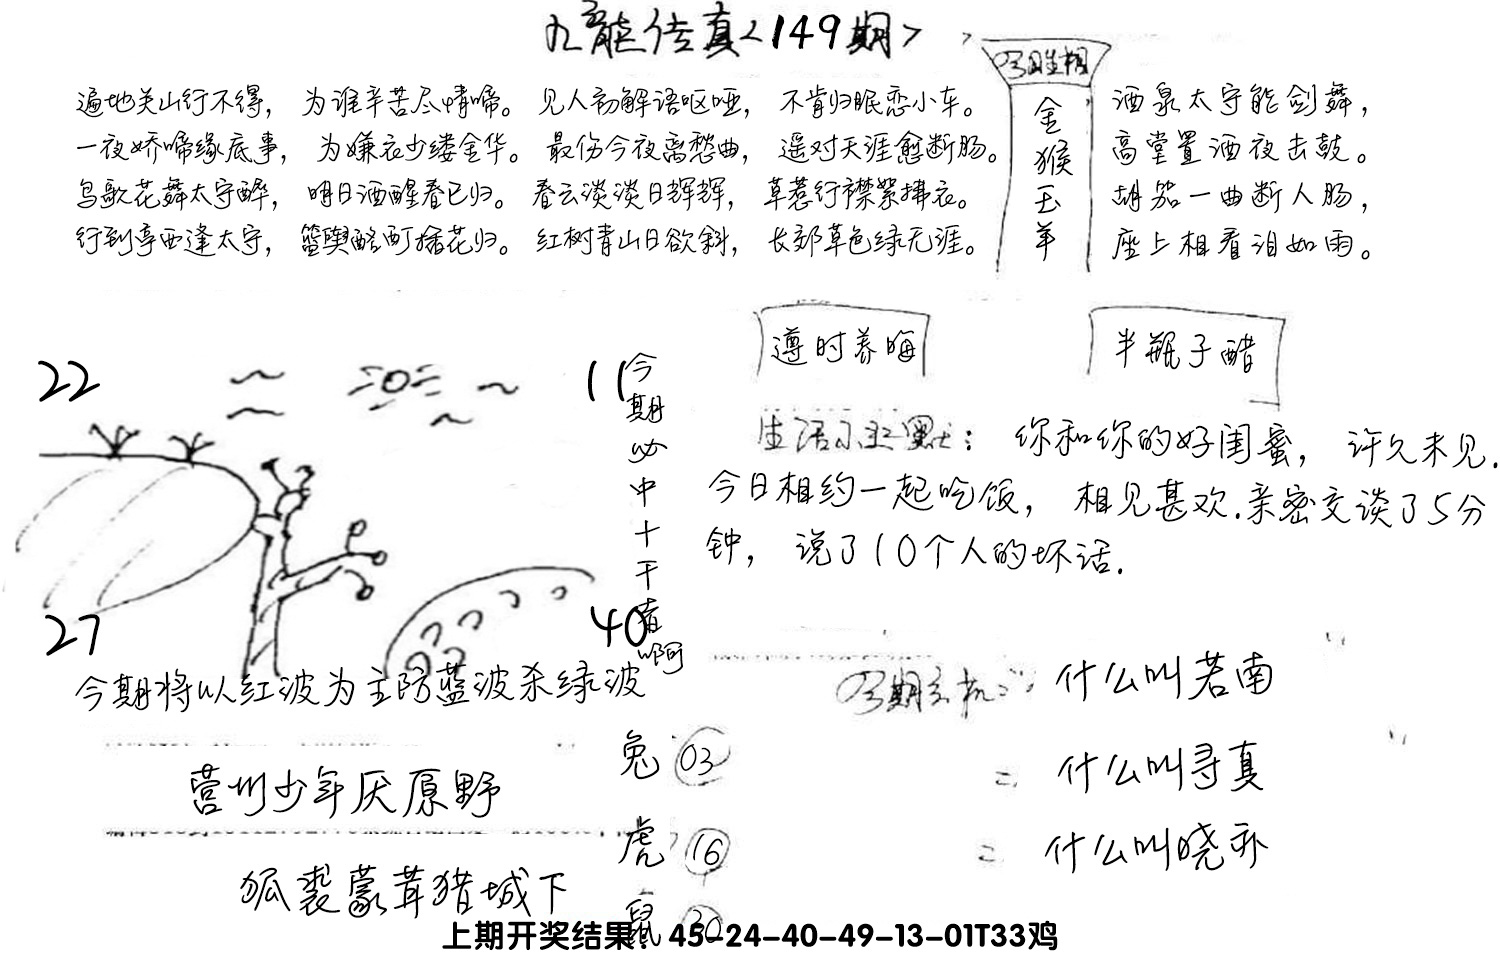 九龙传真<149期>
遍地关山行不得，为谁辛苦尽情啼。见人初解语呕哑，不肯归眠恋小车。
一夜娇啼缘底事，为嫌衣少缕金华。最伤今夜离愁曲，遥对天涯愈断肠。
鸟歌花舞太守醉，明日酒醒春已归。春云淡淡日辉辉，草惹行襟絮拂衣。
行到亭西逢太守，篮舆酩酊插花归。红树青山日欲斜，长郊草色绿无涯。
今日生相
金猴玉羊
酒泉太守能剑舞，
高堂置酒夜击鼓。
胡笳一曲断人肠，
座上相看泪如雨。
遵时养晦
半瓶子醋
22
11
27
40
今期必中十干有啊
今期将以红波为主防蓝波杀绿波
生活小幽默：你和你的好闺蜜，许久未见.
今日相约一起吃饭，相见甚欢.亲密交谈了5分
钟，说了10个人的坏话.
今期玄机：什么叫若南
= 什么叫寻真
= 什么叫晓亦
营州少年厌原野
狐裘蒙茸猎城下
兔 03
虎 16
鼠 30
上期开奖结果：45-24-40-49-13-01T33鸡